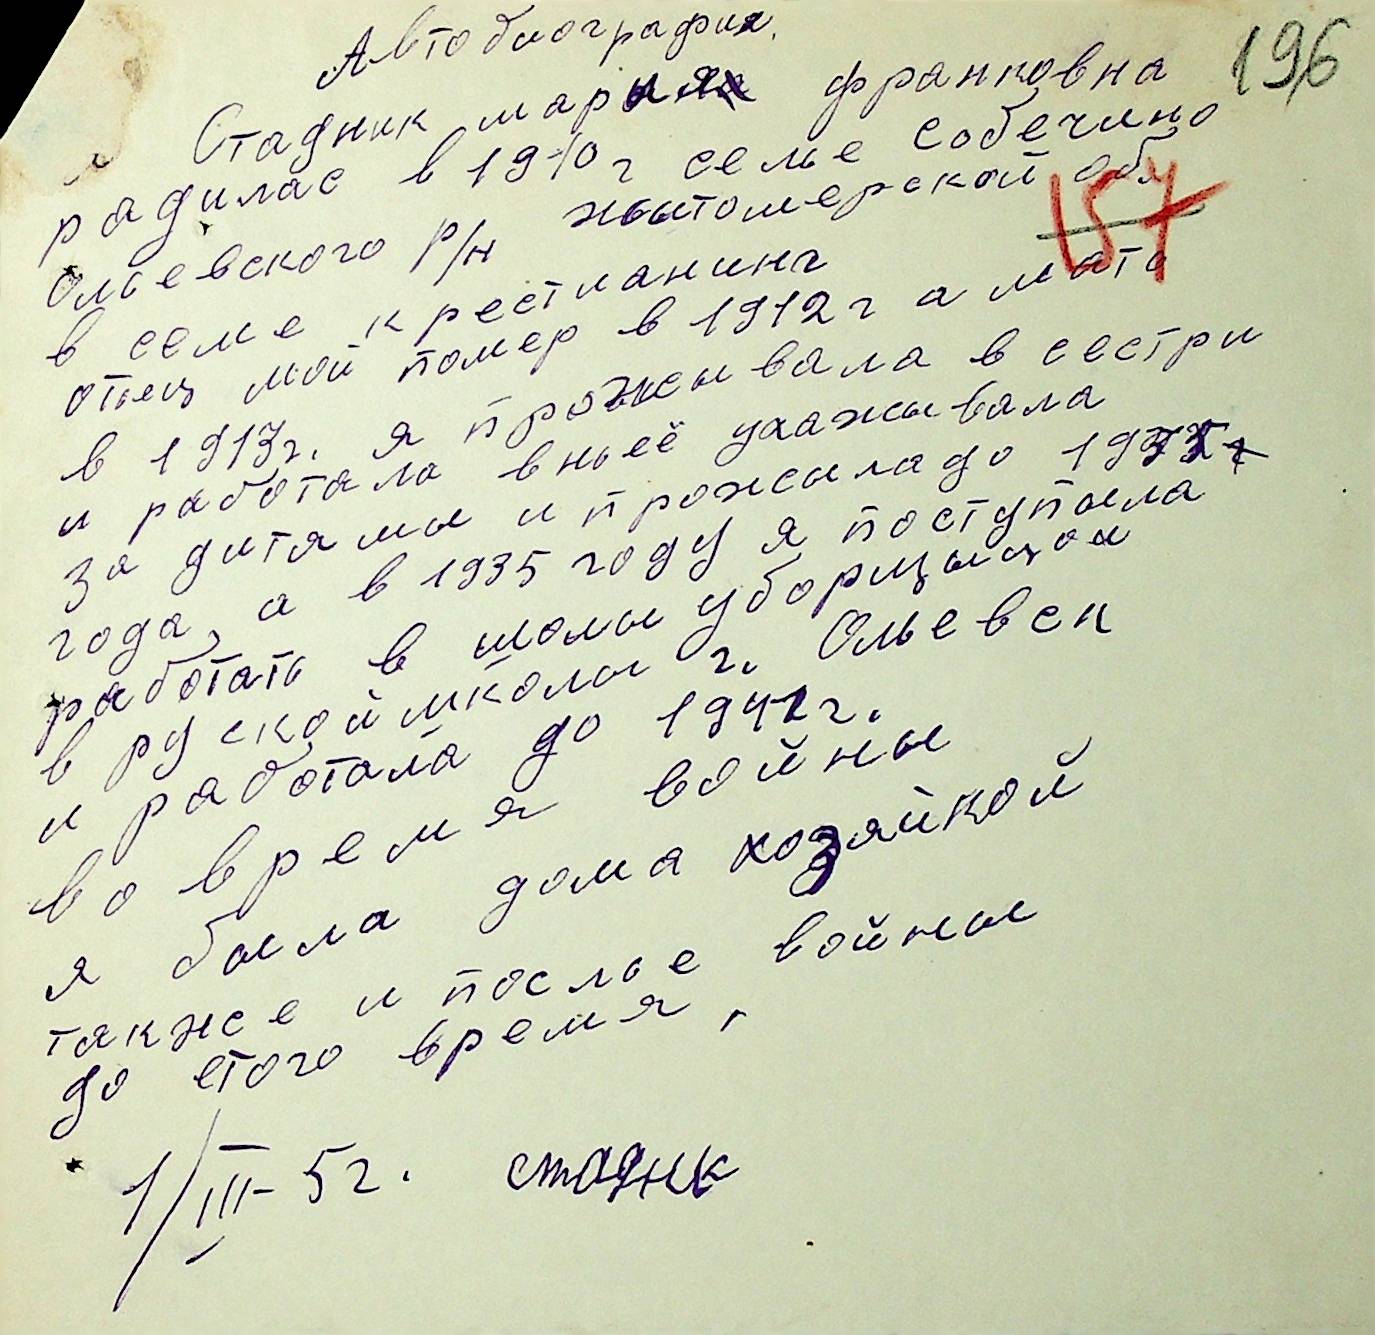 Автобиография.
196
Стадник мария франковна
радилас в 1910г семье собечино
157
Ольевского р/н жытомерской обл
в семе крестианинг
отьец мой помер в 1912г а мать
в 1913г. я прожывала в сестри
и работала вньеё ухажывала
за дитямы и прожыладо 1935г
года, а в 1935 году я поступыла
работать в школы уборщыцой
в рускойшколы г. Ольевск
и работала до 1941г.
во время войны
я была дома хозяйкой
также и послье войны
до етого время,
1/III-5г. стадник